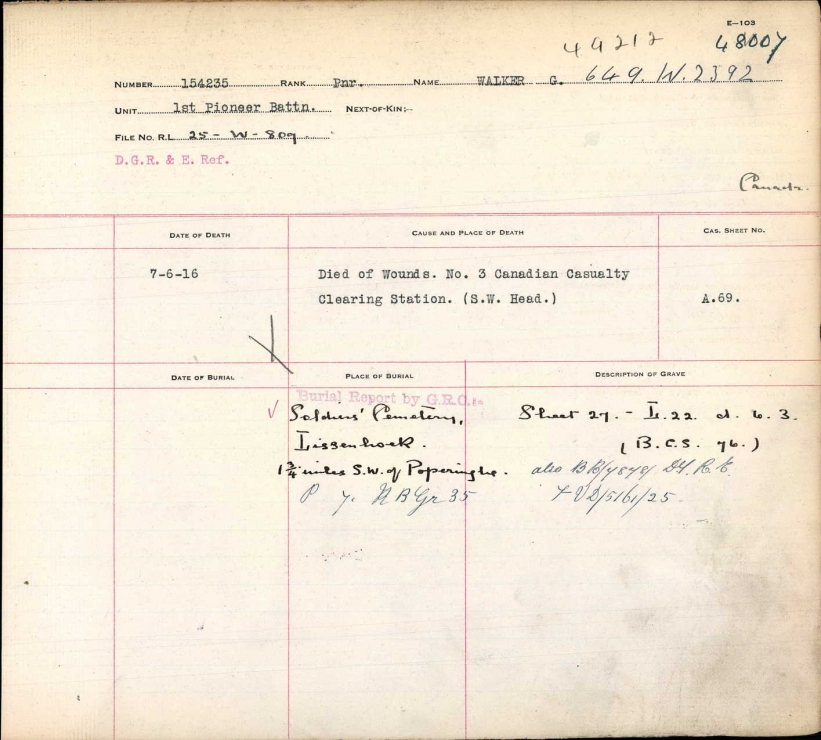 E-103
49212 48007
NUMBER 154235 RANK Pnr. NAME WALKER G. 649.W.2392
UNIT 1st Pioneer Battn. NEXT-OF-KIN:-
FILE NO. R.L. 25-W-809
D.G.R. & E. Ref.
Canada.
DATE OF DEATH CAUSE AND PLACE OF DEATH CAS. SHEET NO.
7-6-16 Died of Wounds. No. 3 Canadian Casualty
Clearing Station. (S.W. Head.) A.69.
DATE OF BURIAL PLACE OF BURIAL DESCRIPTION OF GRAVE
Burial Report by G.R.O.
Soldiers' Cemetery, Sheet 27. - L.22. d. 6. 3.
Lissenhoek. (B.C.S. 76.)
1¾ miles S.W. of Poperinghe. also
P 7. Gr 35